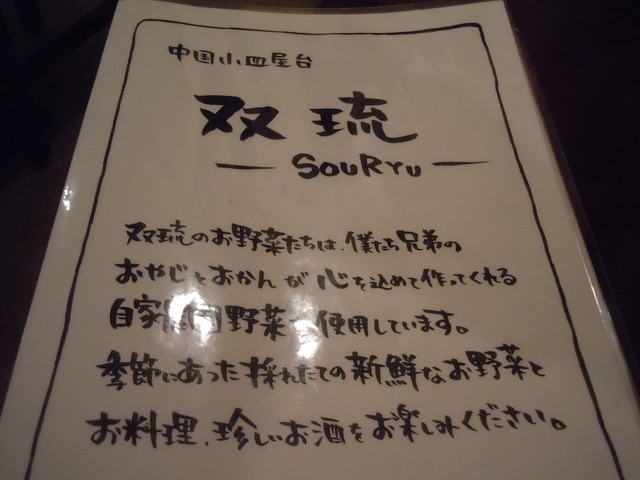 中国小皿屋台
双琉
SOURYU
双琉のお野菜たちは、僕たち兄弟の
おやじとおかんが心を込めて作ってくれる
自家農園野菜を使用しています。
季節にあった採れたての新鮮なお野菜と
お料理、珍しいお酒をお楽しみください。